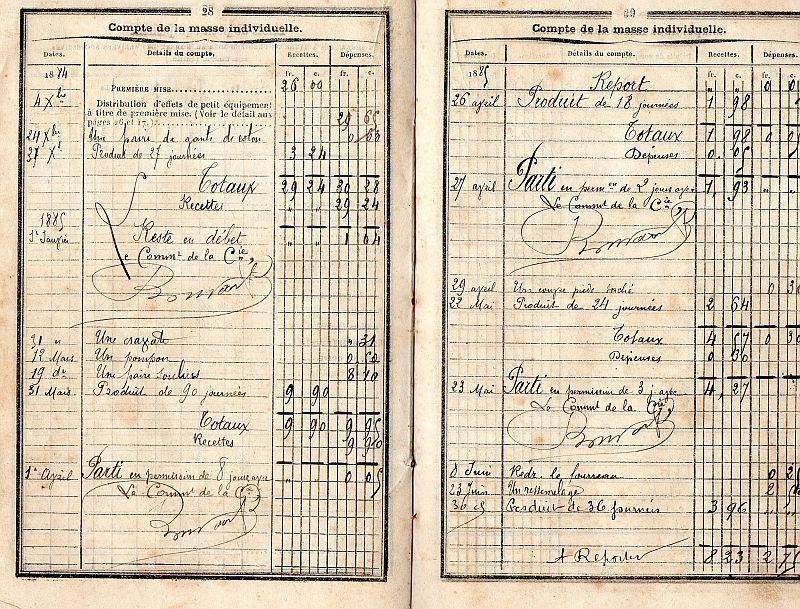 28
Compte de la masse individuelle.
Dates. Détails du compte. Recettes. Dépenses.
fr. c. fr. c.
1884
PREMIÈRE MISE 26 00
4 Xbre Distribution d'effets de petit équipement
à titre de première mise. (Voir le détail aux
pages 16 et 17.) 29 65
24 Xbre Une paire de gants de coton 0 63
31 Xe Produit de 27 journées 3 24
Totaux 29 24 30 28
Recettes " " 29 24
1885
1er Janvier Reste en débet " " 1 04
Le Commt de la Cie
31 " Une cravate " 31
12 Mars Un pompon 0 60
19 do Une paire souliers 8 10
31 Mars Produit de 90 journées 9 90
Totaux 9 90 9 95
Recettes 9 90
1er April Parti en permission de 8 jours avec " " 0 05
Le Commt de la Cie
29
Compte de la masse individuelle.
Dates. Détails du compte. Recettes. Dépenses.
fr. c. fr. c.
1885
Report " " 0 0
26 april Produit de 18 journées 1 98
Totaux 1 98 0 0
Dépenses 0 05
27 april Parti en permon de 2 jours avec 1,93 " "
Le Commt de la Cie
29 april Un 0 30
22 Mai Produit de 24 journées 2 64
Totaux 4 57 0 30
Dépenses 0 30
23 Mai Parti en permission de 3 j avec 4,27
Le Commt de la Cie
8 Juin le fourreau 0 2
23 Juin Un ressemelage 2
30 Produit de 36 journées 3 96 " "
A Reporter 8 23 2 7